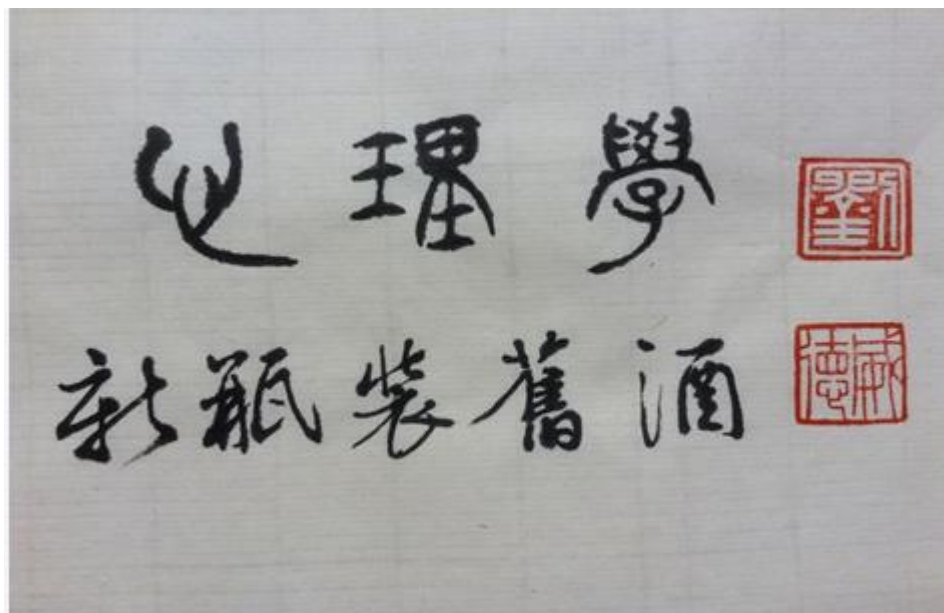 心理學
新瓶裝舊酒
劉
威德